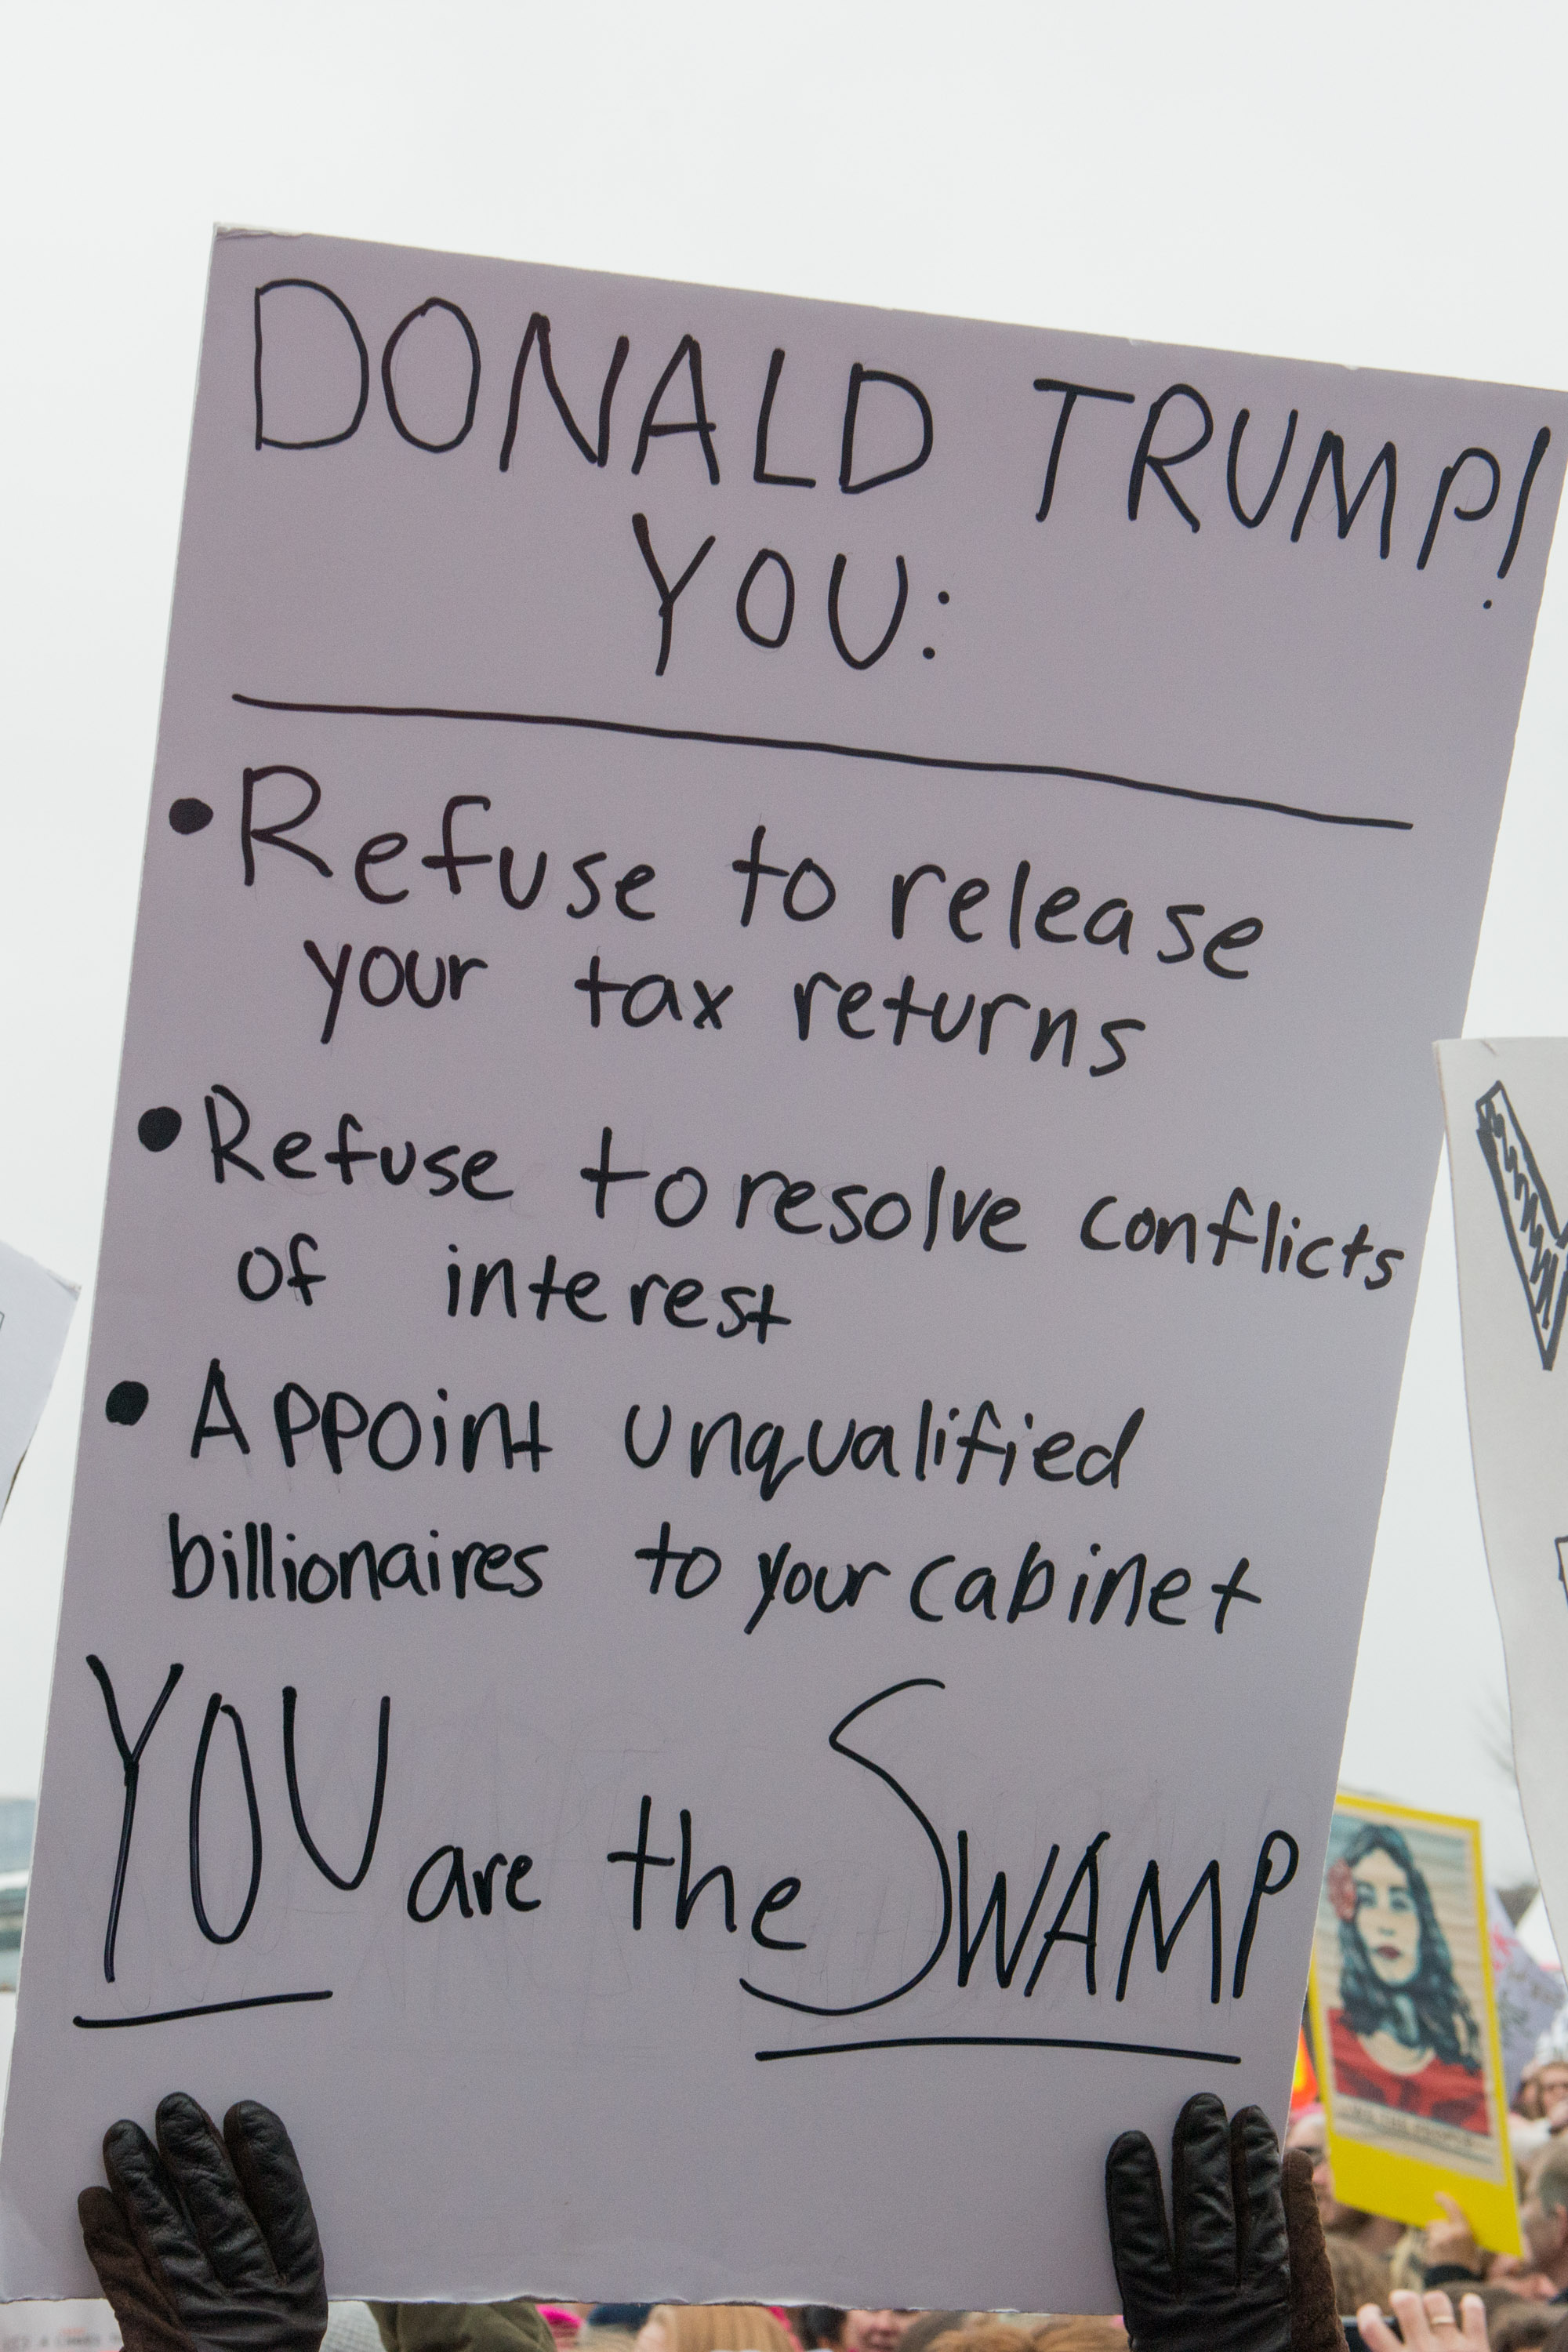 DONALD TRUMP!
YOU:
• Refuse to release
your tax returns
• Refuse to resolve conflicts
of interest
• Appoint unqualified
billionaires to your cabinet
YOU are the SWAMP